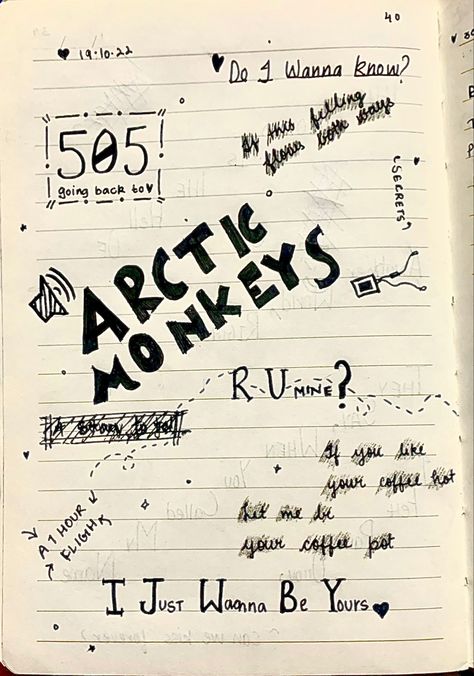 40
19.10.22
Do I Wanna Know?
505
going back to
If this felling
flows both ways
"SECRETS"
ARCTIC
MONKEYS
R U MINE?
If you like
your coffee hot
Let me be
your coffee pot
A 7 HOUR
FLIGHT
I Just Wanna Be Yours